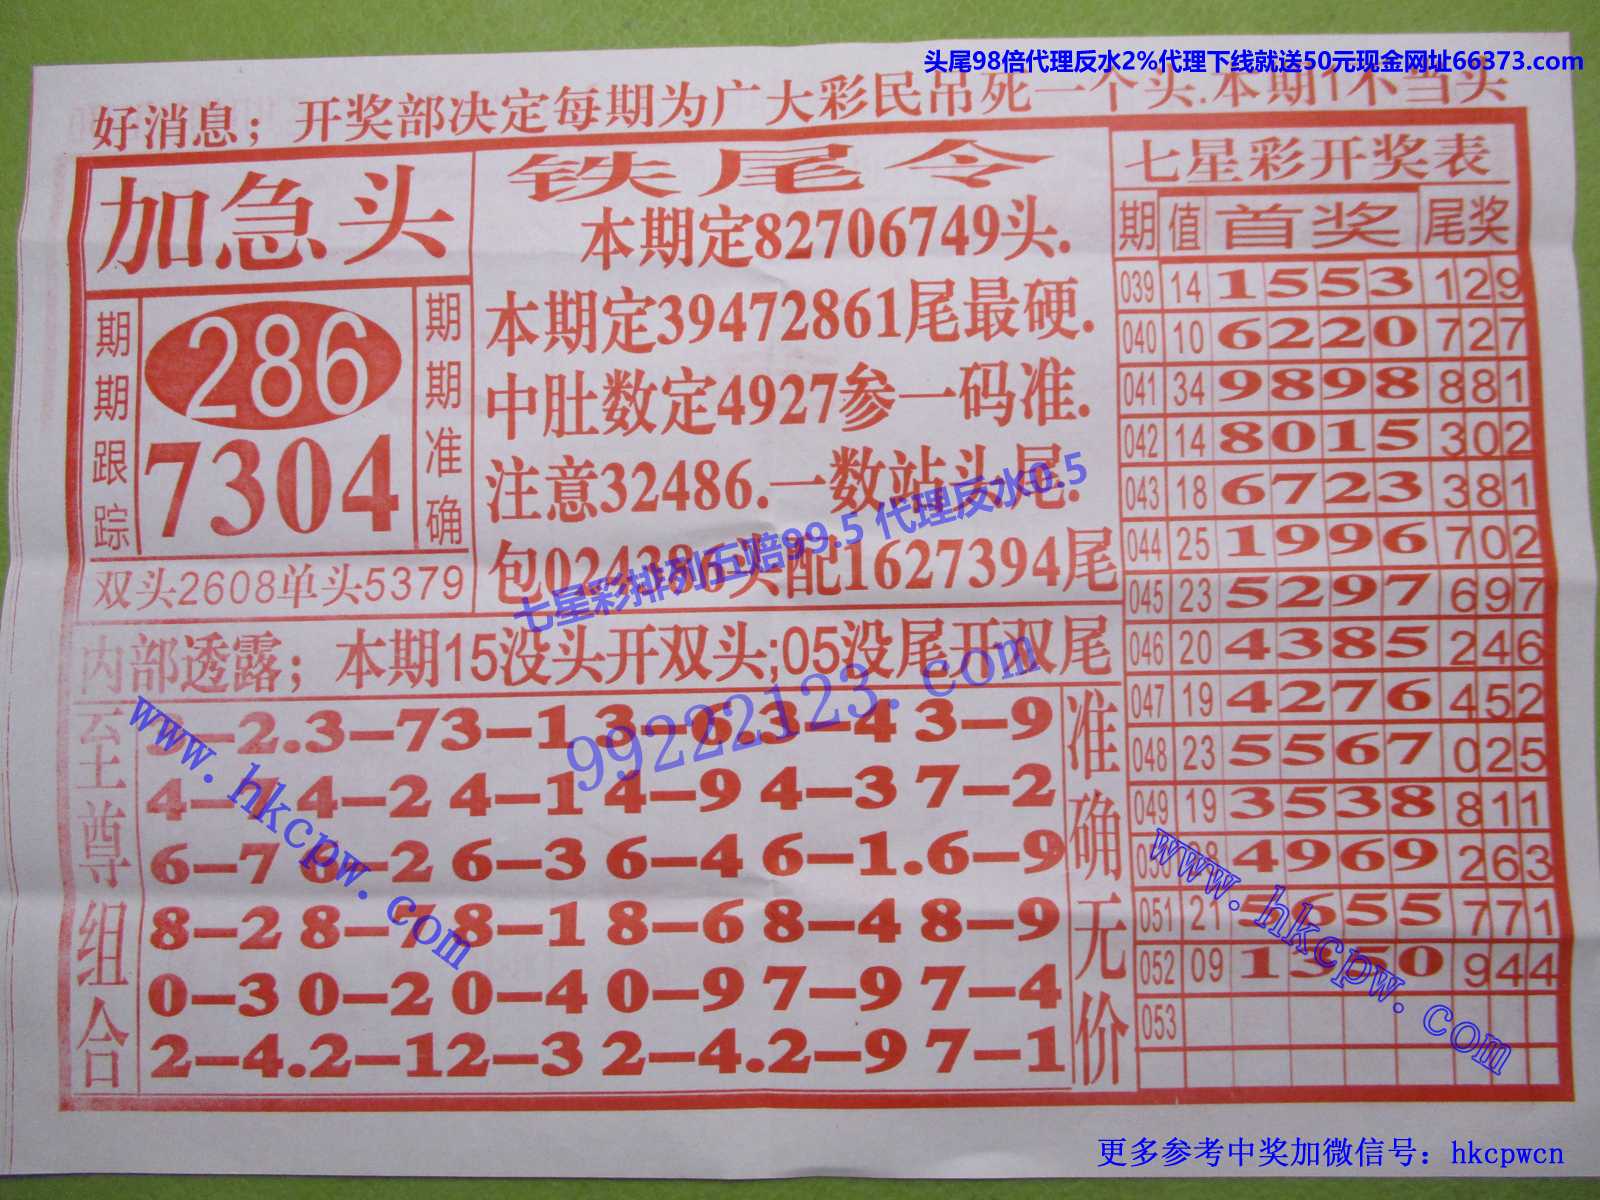 头尾98倍代理反水2%代理下线就送50元现金网址66373.com
好消息；开奖部决定每期为广大彩民吊死一个头.本期1不当头
加急头
期期跟踪
286
7304
期期准确
双头2608单头5379
铁尾令
本期定82706749头.
本期定39472861尾最硬.
中肚数定4927参一码准.
注意32486.一数站头尾.
包024386头配1627394尾
七星彩排列五赔99.5 代理反水0.5
内部透露；本期15没头开双头;05没尾开双尾
99222123.com
至尊组合
3-2.3-73-1 3-6.3-4 3-9
4-7 4-2 4-1 4-9 4-3 7-2
6-7 6-2 6-3 6-4 6-1.6-9
8-2 8-7 8-1 8-6 8-4 8-9
0-3 0-2 0-4 0-9 7-9 7-4
2-4.2-12-3 2-4.2-9 7-1
准确无价
www.hkcpw.com
七星彩开奖表
期 值 首奖 尾奖
039 14 1553 129
040 10 6220 727
041 34 9898 881
042 14 8015 302
043 18 6723 381
044 25 1996 702
045 23 5297 697
046 20 4385 246
047 19 4276 452
048 23 5567 025
049 19 3538 811
050 28 4969 263
051 21 5655 771
052 09 1350 944
053
www.hkcpw.com
更多参考中奖加微信号：hkcpwcn